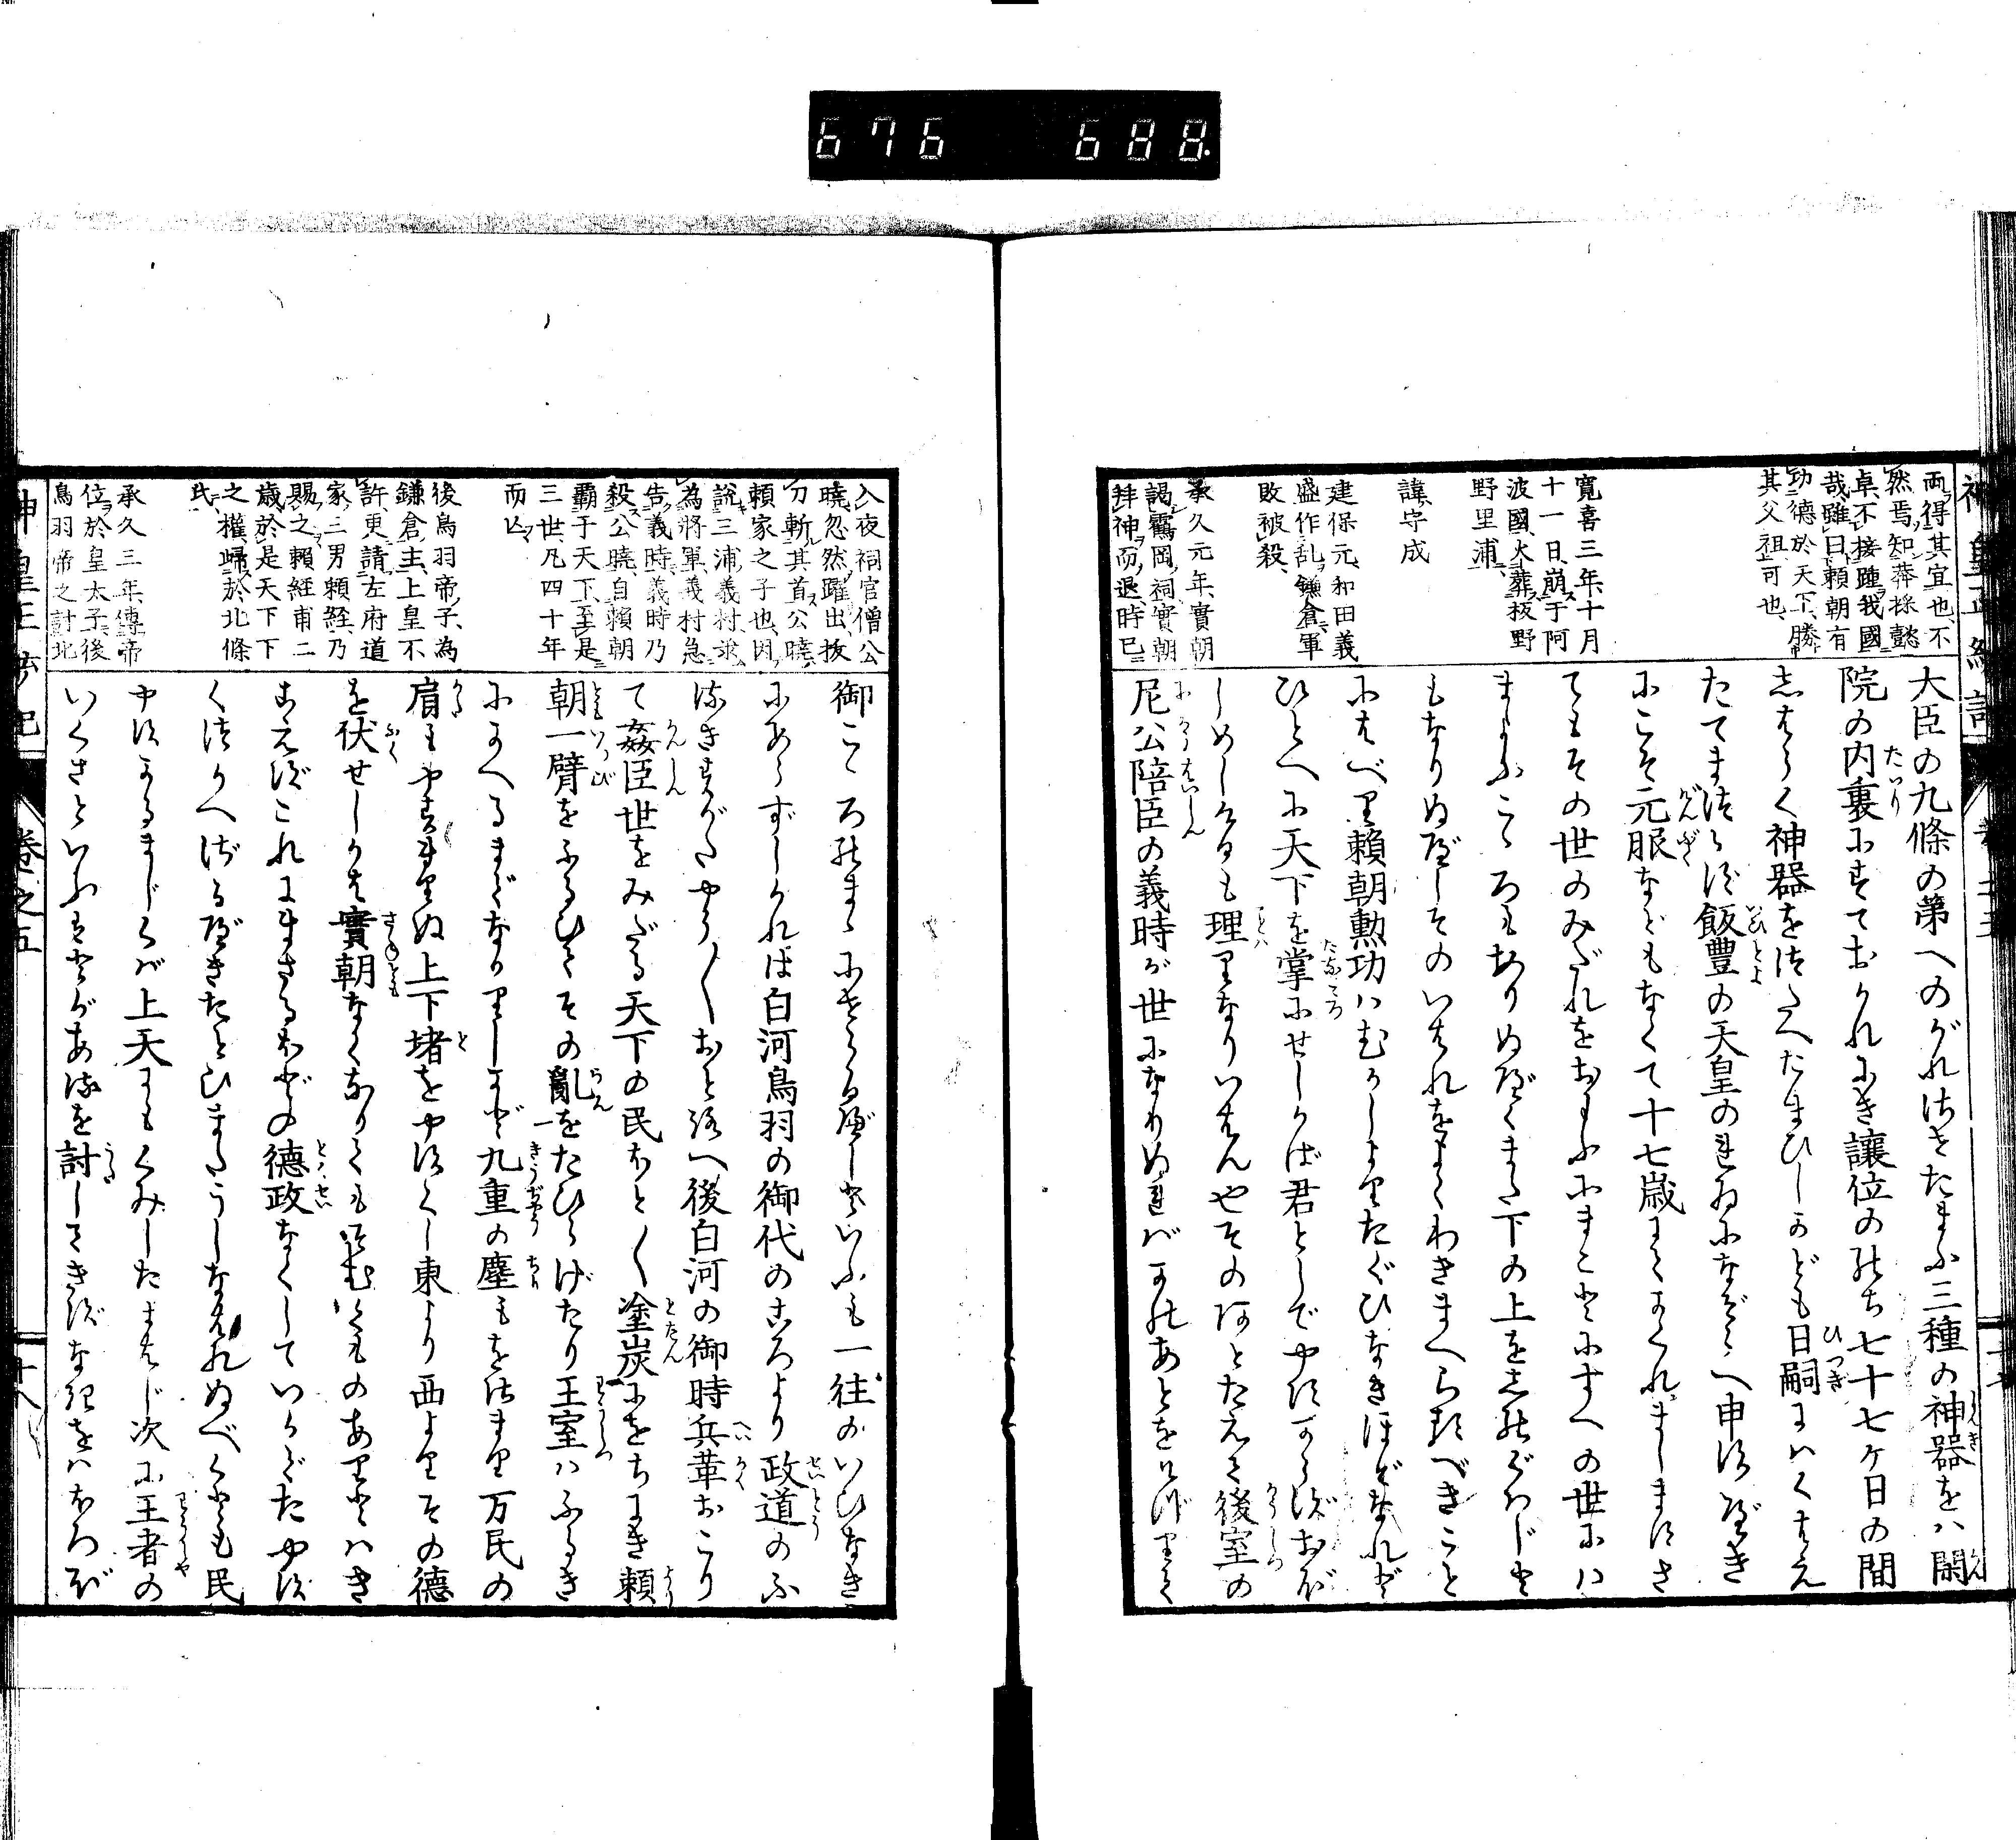 676 688
両得其宜也、不
然焉知莽操懿
卓、不接踵我國
哉、雖曰頼朝有
功德於天下、勝
其父祖可也、
寛喜三年、十月
十一日、崩于阿
波國、火葬板野
野里浦、
諱、守成
建保元、和田義
盛作乱、鎌倉軍
敗被殺、
承久元年、實朝
謁靍岡祠、實朝
拜神而退、時已
大臣の九條の第へのがれさせたまふ三種の神器をハ閑
院の内裏にすておかれにき讓位のゝち七十七ケ日の間
志はらく神器をつたへたまひしかども日嗣にハくはえ
たてまつらす飯豊の天皇のれゐになぞらへ申へき
にこそ元服などもなくて十七歳にてかくれましますさ
てもその世のみだれをおもふにまことにすへの世にハ
まよふこゝろもありぬべくまた下の上を志のぐはじと
もなりぬべしそのいはれをよくわきまへらるべきこと
にはべり頼朝勲功ハむかしよりたぐひなきほどなれど
ひとへに天下を掌にせしかば君としてやすからずおぼ
しめしけるも理りなりいはんやその跡たえて後室の
尼公陪臣の義時が世になりぬればかのあとをけづりて
神皇正統記 卷之五
入夜祠官僧公
曉、忽然躍出、抜
刀斬其首、公曉
頼家之子也、因
說三浦義村、求
為將軍、義村急
告義時、義時乃
殺公曉、自頼朝
覇于天下、至是
三世、凡四十年
而亡
後鳥羽帝子、為
鎌倉主、上皇不
許、更請左府道
家三男頼経、乃
賜之、頼経甫二
歳、於是天下下
之權、歸於北條
氏、
承久三年、傳帝
位於皇太子、後
鳥羽帝之討北
御こゝろのまゝにせらるべしといふも一往のいひなき
にあらずしかれば白河鳥羽の御代のころより政道のふ
るきすがたやう〱おとろへ後白河の御時兵革おこり
て姦臣世をみだる天下の民ほと〱塗炭におちにき頼
朝一臂をふるひてその亂をたひらげたり王室ハふるき
にかへるまでなかりしかど九重の塵もをさまり万民の
肩もやすまりぬ上下堵をやすくし東より西よりその德
を伏せしかは實朝なくなりてもそむくものありとハき
こえずこれにまさるほどの德政なくしていかでたやす
くつかへさるべきたとひまたうしなはれぬべくとも民
やすかるまじくバ上天よもくみしたまはじ次に王者の
いくさといふはとがあるを討してきずなきをハほろぼ
神皇正統記 卷之五 十八